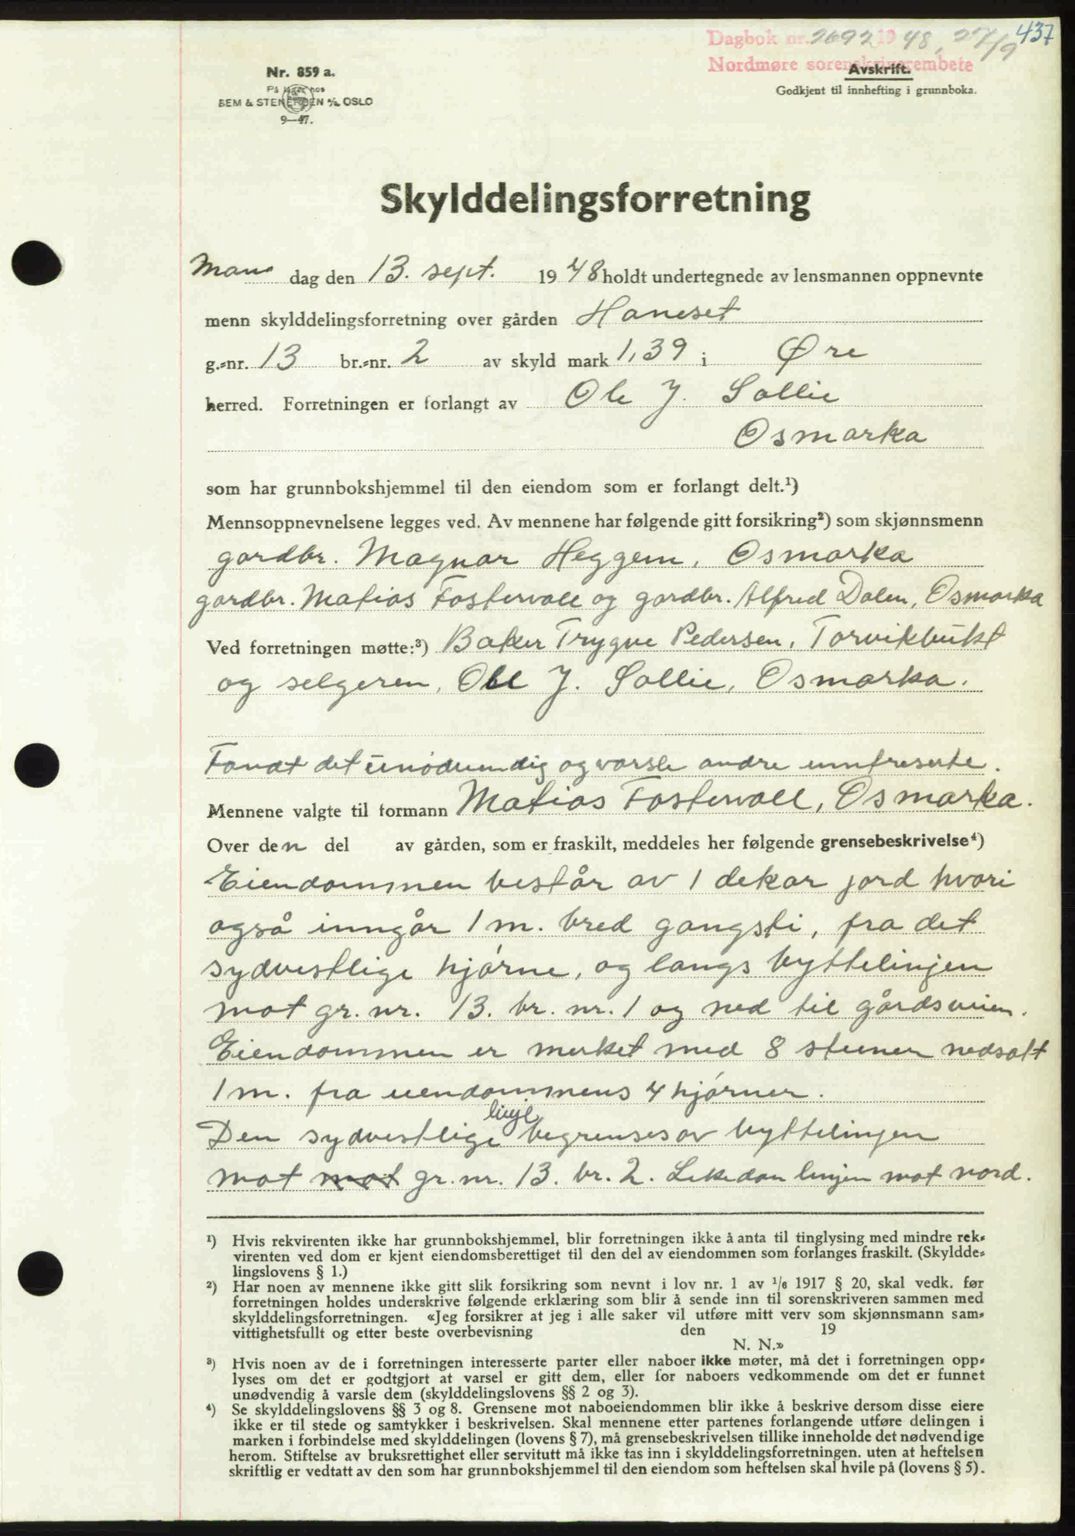 437
Dagbok nr. 2692 1948, 27/9
Nordmøre sorenskriverembete
Avskrift.
Godkjent til innhefting i grunnboka.
Nr. 859 a.
På lager hos
SEM & STENERSEN A/S OSLO
9—47.
Skylddelingsforretning
Man dag den 13. sept. 1948 holdt undertegnede av lensmannen oppnevnte
menn skylddelingsforretning over gården Haneset
g.-nr. 13 br.-nr. 2 av skyld mark 1,39 i Øre
herred. Forretningen er forlangt av Ole J. Sollie
Osmarka
som har grunnbokshjemmel til den eiendom som er forlangt delt.¹)
Mennsoppnevnelsene legges ved. Av mennene har følgende gitt forsikring²) som skjønnsmenn
gardbr. Magnar Heggem, Osmarka
gardbr. Matias Fostervoll og gardbr. Alfred Dalen, Osmarka
Ved forretningen møtte:³) Baker Trygve Pedersen, Torvikbukt
og selgeren, Ole J. Sollie, Osmarka.
Fandt det unødvendig og varsle andre
Mennene valgte til formann Matias Fostervoll, Osmarka.
Over den del av gården, som er fraskilt, meddeles her følgende grensebeskrivelse⁴)
Eiendommen består av 1 dekar jord hvori
også inngår 1 m. bred gangsti, fra det
sydvestlige hjørne, og langs byttelinjen
mot gr. nr. 13. br. nr. 1 og ned til gårdsveien.
Eiendommen er merket med 8 steiner nedsatt
1 m. fra eiendommens 4 hjørner.
Den sydvestlige linje begrenses av byttelinjen
mot mot gr. nr. 13. br. 2. Likedan linjen mot nord.
¹) Hvis rekvirenten ikke har grunnbokshjemmel, blir forretningen ikke å anta til tinglysing med mindre rek-
virenten ved dom er kjent eiendomsberettiget til den del av eiendommen som forlanges fraskilt. (Skyldde-
lingslovens § 1.)
²) Har noen av mennene ikke gitt slik forsikring som nevnt i lov nr. 1 av 1/6 1917 § 20, skal vedk. før
forretningen holdes underskrive følgende erklæring som blir å sende inn til sorenskriveren sammen med
skylddelingsforretningen. «Jeg forsikrer at jeg i alle saker vil utføre mitt verv som skjønnsmann sam-
vittighetsfullt og etter beste overbevisning den 19
N. N.»
³) Hvis noen av de i forretningen interesserte parter eller naboer ikke møter, må det i forretningen opp-
lyses om det er godtgjort at varsel er gitt dem, eller for naboers vedkommende om det er funnet
unødvendig å varsle dem (skylddelingslovens §§ 2 og 3).
⁴) Se skylddelingslovens §§ 3 og 8. Grensene mot naboeiendommen blir ikke å beskrive dersom disse eiere
ikke er til stede og samtykker i beskrivelsen. Skal mennene etter partenes forlangende utføre delingen i
marken i forbindelse med skylddelingen (lovens § 7), må grensebeskrivelsen tillike inneholde det nødvendige
herom. Stiftelse av bruksrettighet eller servitutt må ikke tas inn i skylddelingsforretningen, uten at heftelsen
skriftlig er vedtatt av den som har grunnbokshjemmel til den eiendom som heftelsen skal hvile på (lovens § 5).